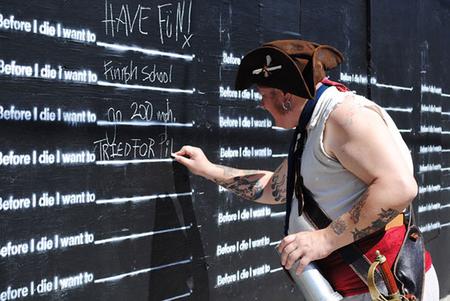 Before I die I want to HAVE FUN!
Before I die I want to Finish School
Before I die I want to go 200 mph.
Before I die I want to TRIED FOR PI
Before I die I want to
Before I die I want to
Before I die I want to
Before I die I want to
Before I die I want to
Before I die I want to
Before I die I want to
Before I die I want to
Before I die I want to
Before I die I want to
Before I die I want to